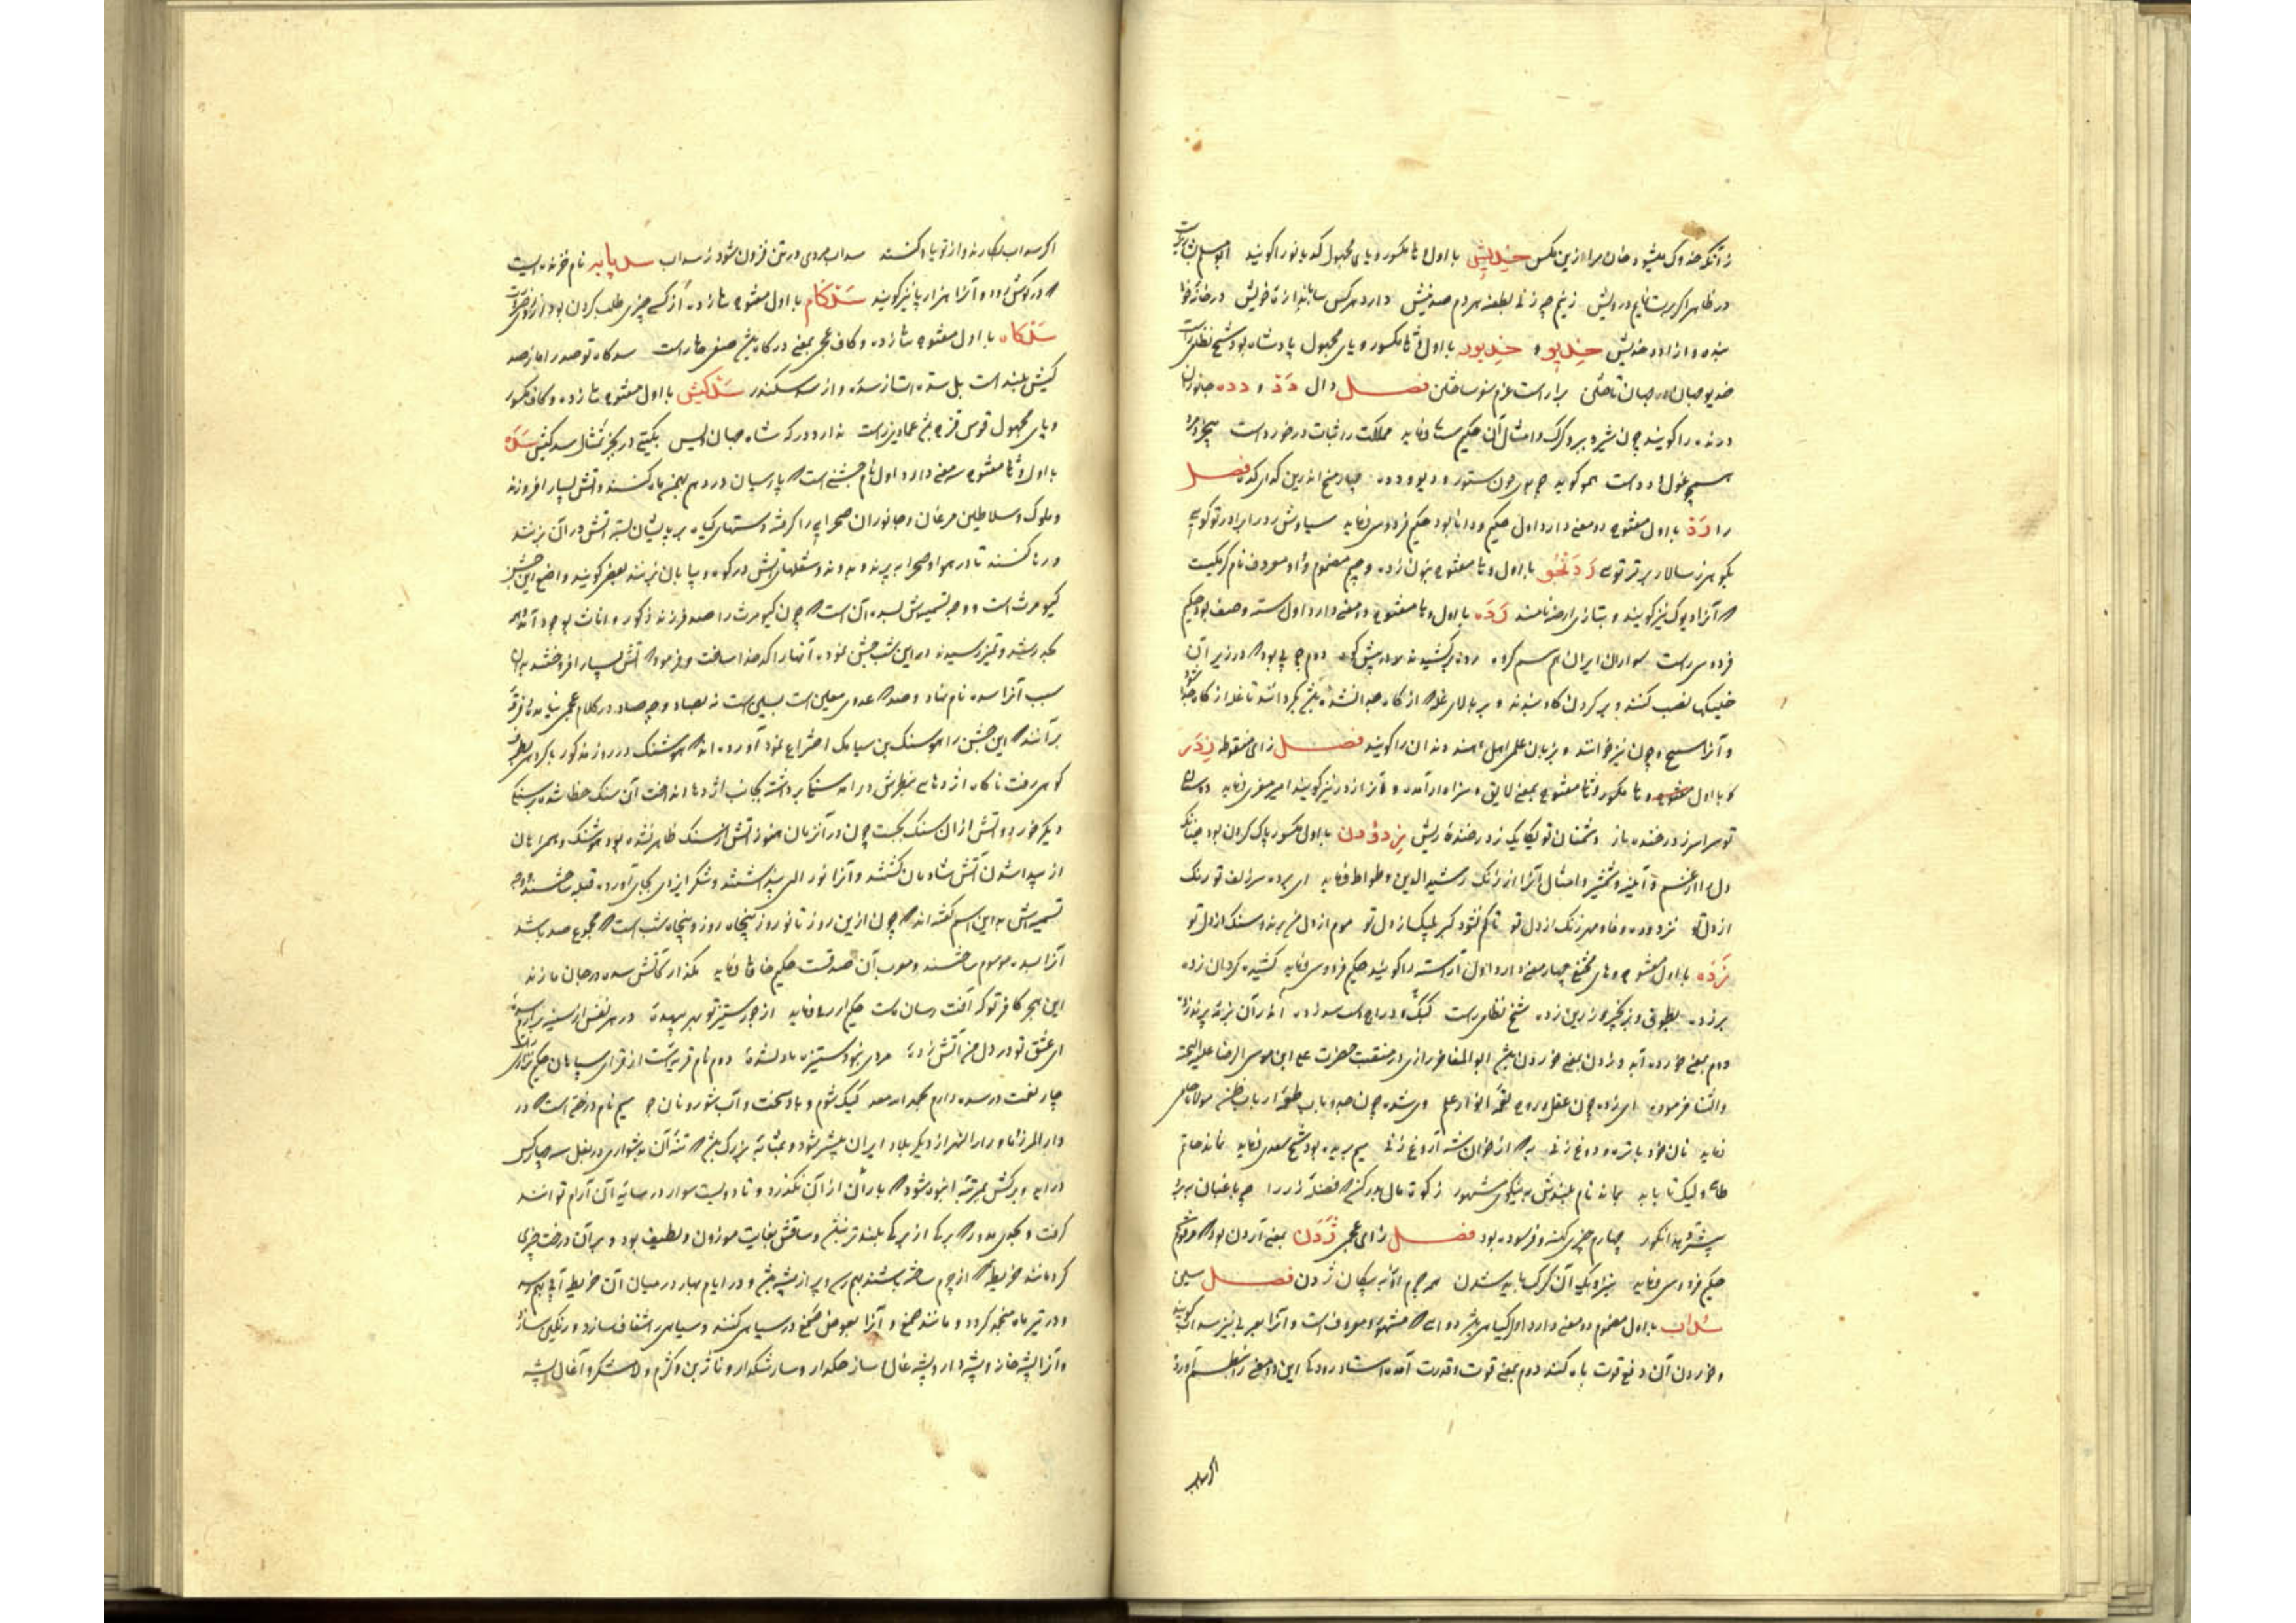 زانکه خدوک میشود جان مرا ازین مکس خدیش با اول و ثانی مکسور و یای مجهول کدبانو را کویند
در ظاهر اکر پرستایم درویش زینم چه زنی لطعنه هردم صد نیش دارد هر کس باندازهٔ خویش در خانهٔ خود
بنده و آزاد و خدیش خدیو و خدیور با اول و ثانی مکسور و یای مجهول پادشاه بود شیخ نظامی راست
خدیو جهان در جهان تاختن برآراست عزم سفر ساختن فصل دال دد و دده جانوران
درنده را کویند چون شیر و ببر و کرک و امثال آن حکیم سنائی فرماید مملکت را ثبات درخورد است
هیچ غول و دد است همو کوید چه بوی چون ستور و دیو و دده چار میخ اندرین کدای کده فصل
را رد با اول مفتوح دو معنی دارد اول حکیم و دانا بود حکیم فردوسی فرماید سیاوش رد را برادر توئی
بکوهر ز سالار برتر توئی با اول و ثانی مفتوح بنون زده و جیم مضموم و واو معروف نام کرمکیست
که آنرا دیوک نیز کویند و بتازی ارضه نامند رده با اول و ثانی مفتوح دو معنی دارد اول رسته و صف بود حکیم
فردوسی راست سواران ایران هم رسم کرده رده برکشیدند در پیش دوم چوبی بود که در زیر آن
نصب کنند و بر کردن کاو بندند و بر بالای غله از کاه جدا نشده بکردانند تا غله از کاه جدا شود
و آنرا چون نیز خوانند و بزبان علمی اهل هند دندان را کویند فصل زای منقوطه زدر
با اول و ثانی مفتوح بمعنی لایق و سزاوار آمده و آنرا از در نیز کویند امیر معزی فرماید دوستان
تو سراسر ز در خنده ناز دشمنان تو یکایک ز در خندهٔ ریش زدودن با اول مکسور پاک کردن بود چنانکه
دل را از غم و آینه و شمشیر و امثال آنرا از زنک رشیدالدین وطواط فرماید ای برده سر زلف تو رنک
از دل تو نزدوده وفا و مهر زنک از دل تو تا کم نشود کبر پلنک از دل تو موم از دل من برند و سنک از دل تو
زده با اول مفتوح و های مختفی چهار معنی دارد اول آراسته را کویند حکیم فردوسی فرماید کشیده کردان زده
بر زده بطوق و زنجیر زرین زده شیخ نظامی راست کبک و دراج
دوم بمعنی خورده آید و زدن بمعنی خوردن باشد ابوالمفاخر رازی در منقبت حضرت علی ابن موسی الرضا علیه التحیه
والثنا فرموده ای زده چون عقل و روح لقمهٔ انوار علم وی شده چون جد و باب طعمهٔ ارباب ظن مولانا جامی
فرماید نان خود با تره و دوغ زنی به که از خوان شه آروغ زنی سیم بریده بود شیخ سعدی فرماید نماند حاتم
طائی ولیک تا بابد بماند نام بلندش به نیکوی مشهور زکوة مال بدر کن که فضلهٔ رز را چو باغبان ببرد
بیشتر دهد انکور چهارم چیزی کهنه و فرسوده بود فصل زای عجمی ژدن بمعنی آژدن بود که مرقوم شد
حکیم فردوسی فرماید بنزدیک آن کرک باید شدن همه چرم او را به پیکان ژدن فصل سین
سداب با اول مضموم دو معنی دارد اول کیاهی باشد دوائی که مشهور و معروف است و آنرا بعربی نیز سداب کویند
و خوردن آن دفع قوت باه کند دوم بمعنی قوت و قدرت آمده استاد رودکی این دو معنی را بنظم آورده
اکر سداب
اکر سداب بکارند و از تو یاد کنند سداب مردی در تن فزون شود ز سداب سدپایه نام خزنده ایست
که در کوش رود و آنرا هزارپا نیز کویند سدکام با اول مفتوح بثانی زده از کسی چیزی طلب کردن بود
سدکاه با اول مفتوح بثانی زده و کاف عجمی بمعنی درکاه باشد منصفی راست سدکاه تو صدر امان صد
کیش بلند است بل سدره است از سده و از سد سکندر سدکیش با اول مفتوح بثانی زده و کاف مکسور
و یای مجهول قوس قزح باشد عمادی راست ندارد درکه شاه جهان دلیس بکیتی در بجز تمثال سدکیش سده
با اول و ثانی مفتوح سه معنی دارد اول نام جشنی است که پارسیان در دهم بهمن ماه کنند و آتش بسیار افروزند
و ملوک و سلاطین مرغان و جانوران صحرایی را کرفته دستهای کیاه بر پای ایشان بسته آتش در آن برزنند
و رها کنند تا در هوا و صحرا بپرند و بدوند و شعلهای آتش در کوه و بیابان بزنند بعضی کویند واضع این جشن
کیومرث است و وجه تسمیه‌اش بسده آن است که چون کیومرث را صد فرزند ذکور و اناث بوجود آمده
بحد رشد و تمیز رسیدند در این شب جشن نموده آنها را کدخدا ساخت و فرمود که آتش بسیار افروختند بدان
سبب آنرا سده نام نهاد و صد که عددی معین است بسین است نه بصاد و چه صاد در کلام عجمی نیامده و فرقهٔ
برآنند که این جشن را هوشنک بن سیامک اختراع نمود آورده‌اند که هوشنک در روز مذکور با کروهی بطرف
کوهی رفت ناکاه اژدهایی بنظرش درآمد سنکی برداشته بجانب اژدها انداخت آن سنک خطا شده بر سنک
دیکر خورد و آتش از آن سنک بجست چون در آنزمان هنوز آتش از سنک ظاهر نشده بود هوشنک و همراهان
از پیدا شدن آتش شادمان کشتند و آنرا نور الهی پنداشتند و شکر ایزدی بجای آورده قبله ساختند و وجه
تسمیه‌اش به این اسم کفته‌اند که چون ازین روز تا نوروز پنجاه روز و پنجاه شب است که مجموع صد باشد
آنرا بسده موسوم ساختند و معرب آن صدقست حکیم خاقانی فرماید مکذار کآتش سده در جان ما زند
این هجر کافر تو که آفت رسان ماست حکیم ازرقی فرماید از جور ستیز تو بهر بیهوده در هر نفس از سینه برآرم سده
ای عشق تو در دل من آتش زدهٔ مردی نبود ستیزه با دلشدهٔ دوم نام قریه است از قرای سپاهان حکیم نزاری
چار لغت در سده دارم بحد از معد کیک شوم و باد سخت و آب شور و نان جو سیم نام درختی است که در
دارالمرز و ماوراءالنهر از دیکر بلاد ایران بیشتر شود و بمثابهٔ بزرک باشد که تنهٔ آن بدشواری در بغل سه چهار کس
درآید و برکش بمرتبهٔ انبوه شود که باران از آن نکذرد و تا دویست سوار در سایهٔ آن آرام توانند
کرفت و بکدوی مدور که برکها از برکها بلندتر باشد و ساقش بغایت موزون و لطیف بود و بر آن درخت چیزی
کرد مانند خریطهٔ که از چرم ساخته باشند بهم رسد و پر از پشه باشد و در ایام بهار در میان آن خریطه آبی بهم رسد
و در تیرماه منجمد کردد و مانند صمغ و آنرا بعوض صمغ در سیاهی کنند و سیاهی را شفاف سازد و رنکین سازد
و آنرا پشه‌خانه و پشه‌دار و پشه‌غال و سارخکدار و سارشکدار و نارون و کژم و لامشکر و آغال پشه